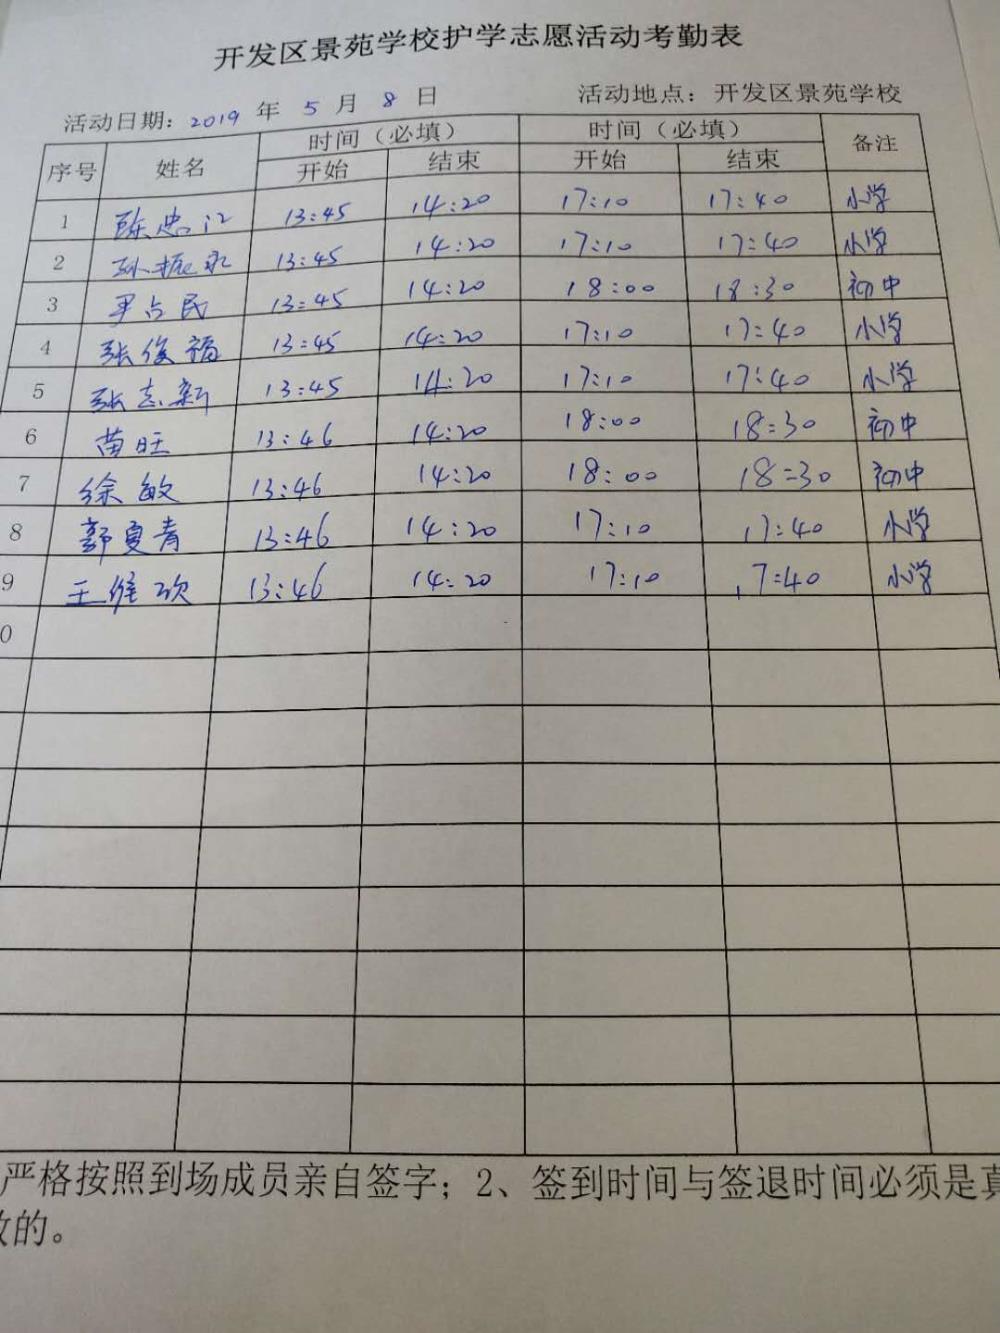 开发区景苑学校护学志愿活动考勤表
活动日期: 2019 年 5 月 8 日 活动地点: 开发区景苑学校
序号 姓名 时间（必填） 时间（必填） 备注
开始 结束 开始 结束
1 陈忠江 13:45 14:20 17:10 17:40 小学
2 孙振永 13:45 14:20 17:10 17:40 小学
3 尹占民 13:45 14:20 18:00 18:30 初中
4 张俊福 13:45 14:20 17:10 17:40 小学
5 张志新 13:45 14:20 17:10 17:40 小学
6 苗旺 13:46 14:20 18:00 18:30 初中
7 徐敏 13:46 14:20 18:00 18:30 初中
8 郭夏青 13:46 14:20 17:10 17:40 小学
9 王维 13:46 14:20 17:10 17:40 小学
0
严格按照到场成员亲自签字; 2、签到时间与签退时间必须是真
的。